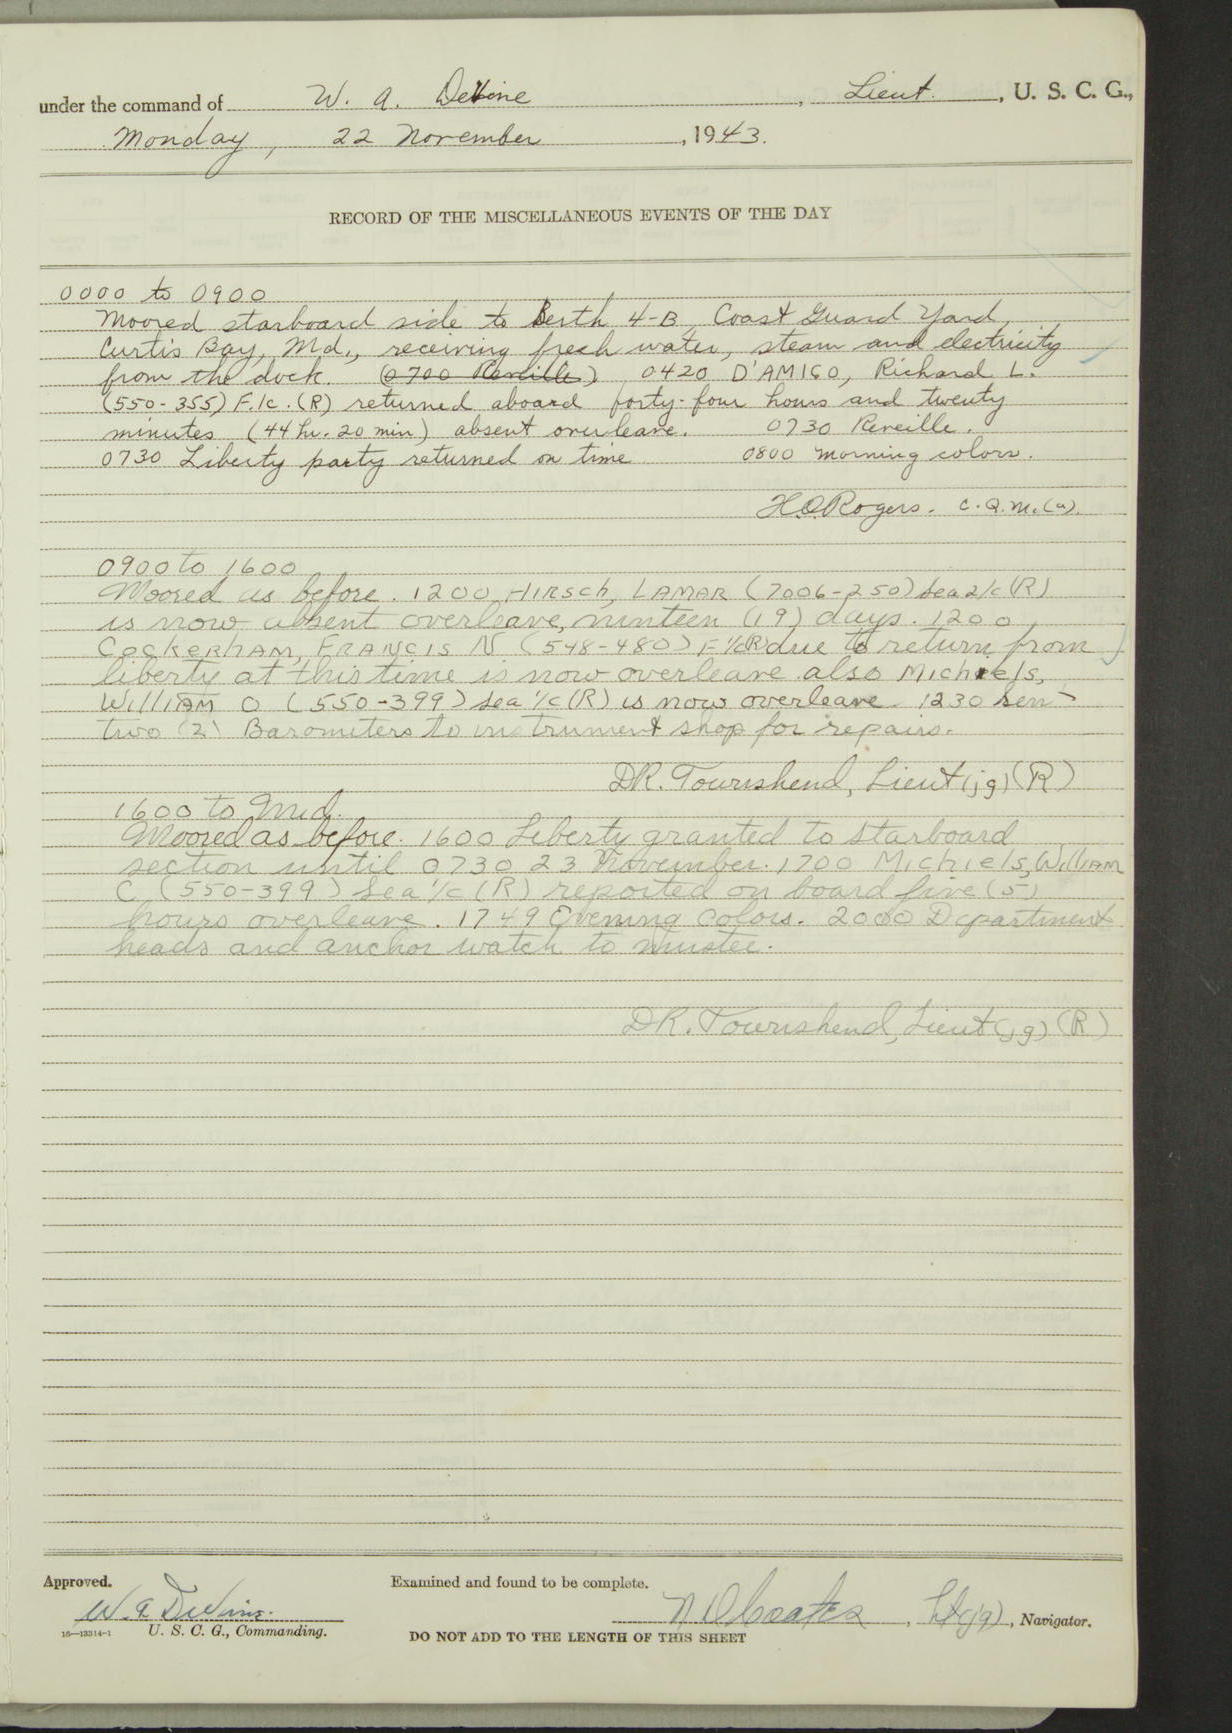 under the command of W. A. DeVine, Lieut., U. S. C. G.,
Monday, 22 November, 1943.
RECORD OF THE MISCELLANEOUS EVENTS OF THE DAY
0000 to 0900
Moored starboard side to Berth 4-B, Coast Guard Yard,
Curtis Bay, Md., receiving fresh water, steam and electricity
from the dock. (0700 Reveille) 0420 D'AMICO, Richard L.
(550-355) F.1c. (R) returned aboard forty-four hours and twenty
minutes (44 hr. 20 min) absent overleave. 0730 Reveille.
0730 Liberty party returned on time 0800 morning colors.
H.O.Rogers. C.Q.M.(a).
0900 to 1600
Moored as before. 1200 HIRSCH, LAMAR (7006-250) Sea 2/c (R)
is now absent overleave, ninteen (19) days. 1200
COCKERHAM, FRANCIS N (548-480) F 1/c(R) due to return from
liberty at this time is now overleave also Michiels,
WilliAM O (550-399) Sea 1/c (R) is now overleave 1230 sent
two (2) Barometers to instrument shop for repairs.
DR. Townshend, Lieut (jg) (R)
1600 to Mid.
Moored as before. 1600 Liberty granted to starboard
section until 0730 23 November. 1700 Michiels, WilliAM
C (550-399) Sea 1/c (R) reported on board five (5)
hours overleave. 1749 Evening Colors. 2000 Department
heads and anchor watch to muster.
DR. Townshend, Lieut (jg) (R)
Approved.
Examined and found to be complete.
W. A. DeVine.
N D Coates, Lt(jg), Navigator.
16—13314-1 U. S. C. G., Commanding.
DO NOT ADD TO THE LENGTH OF THIS SHEET